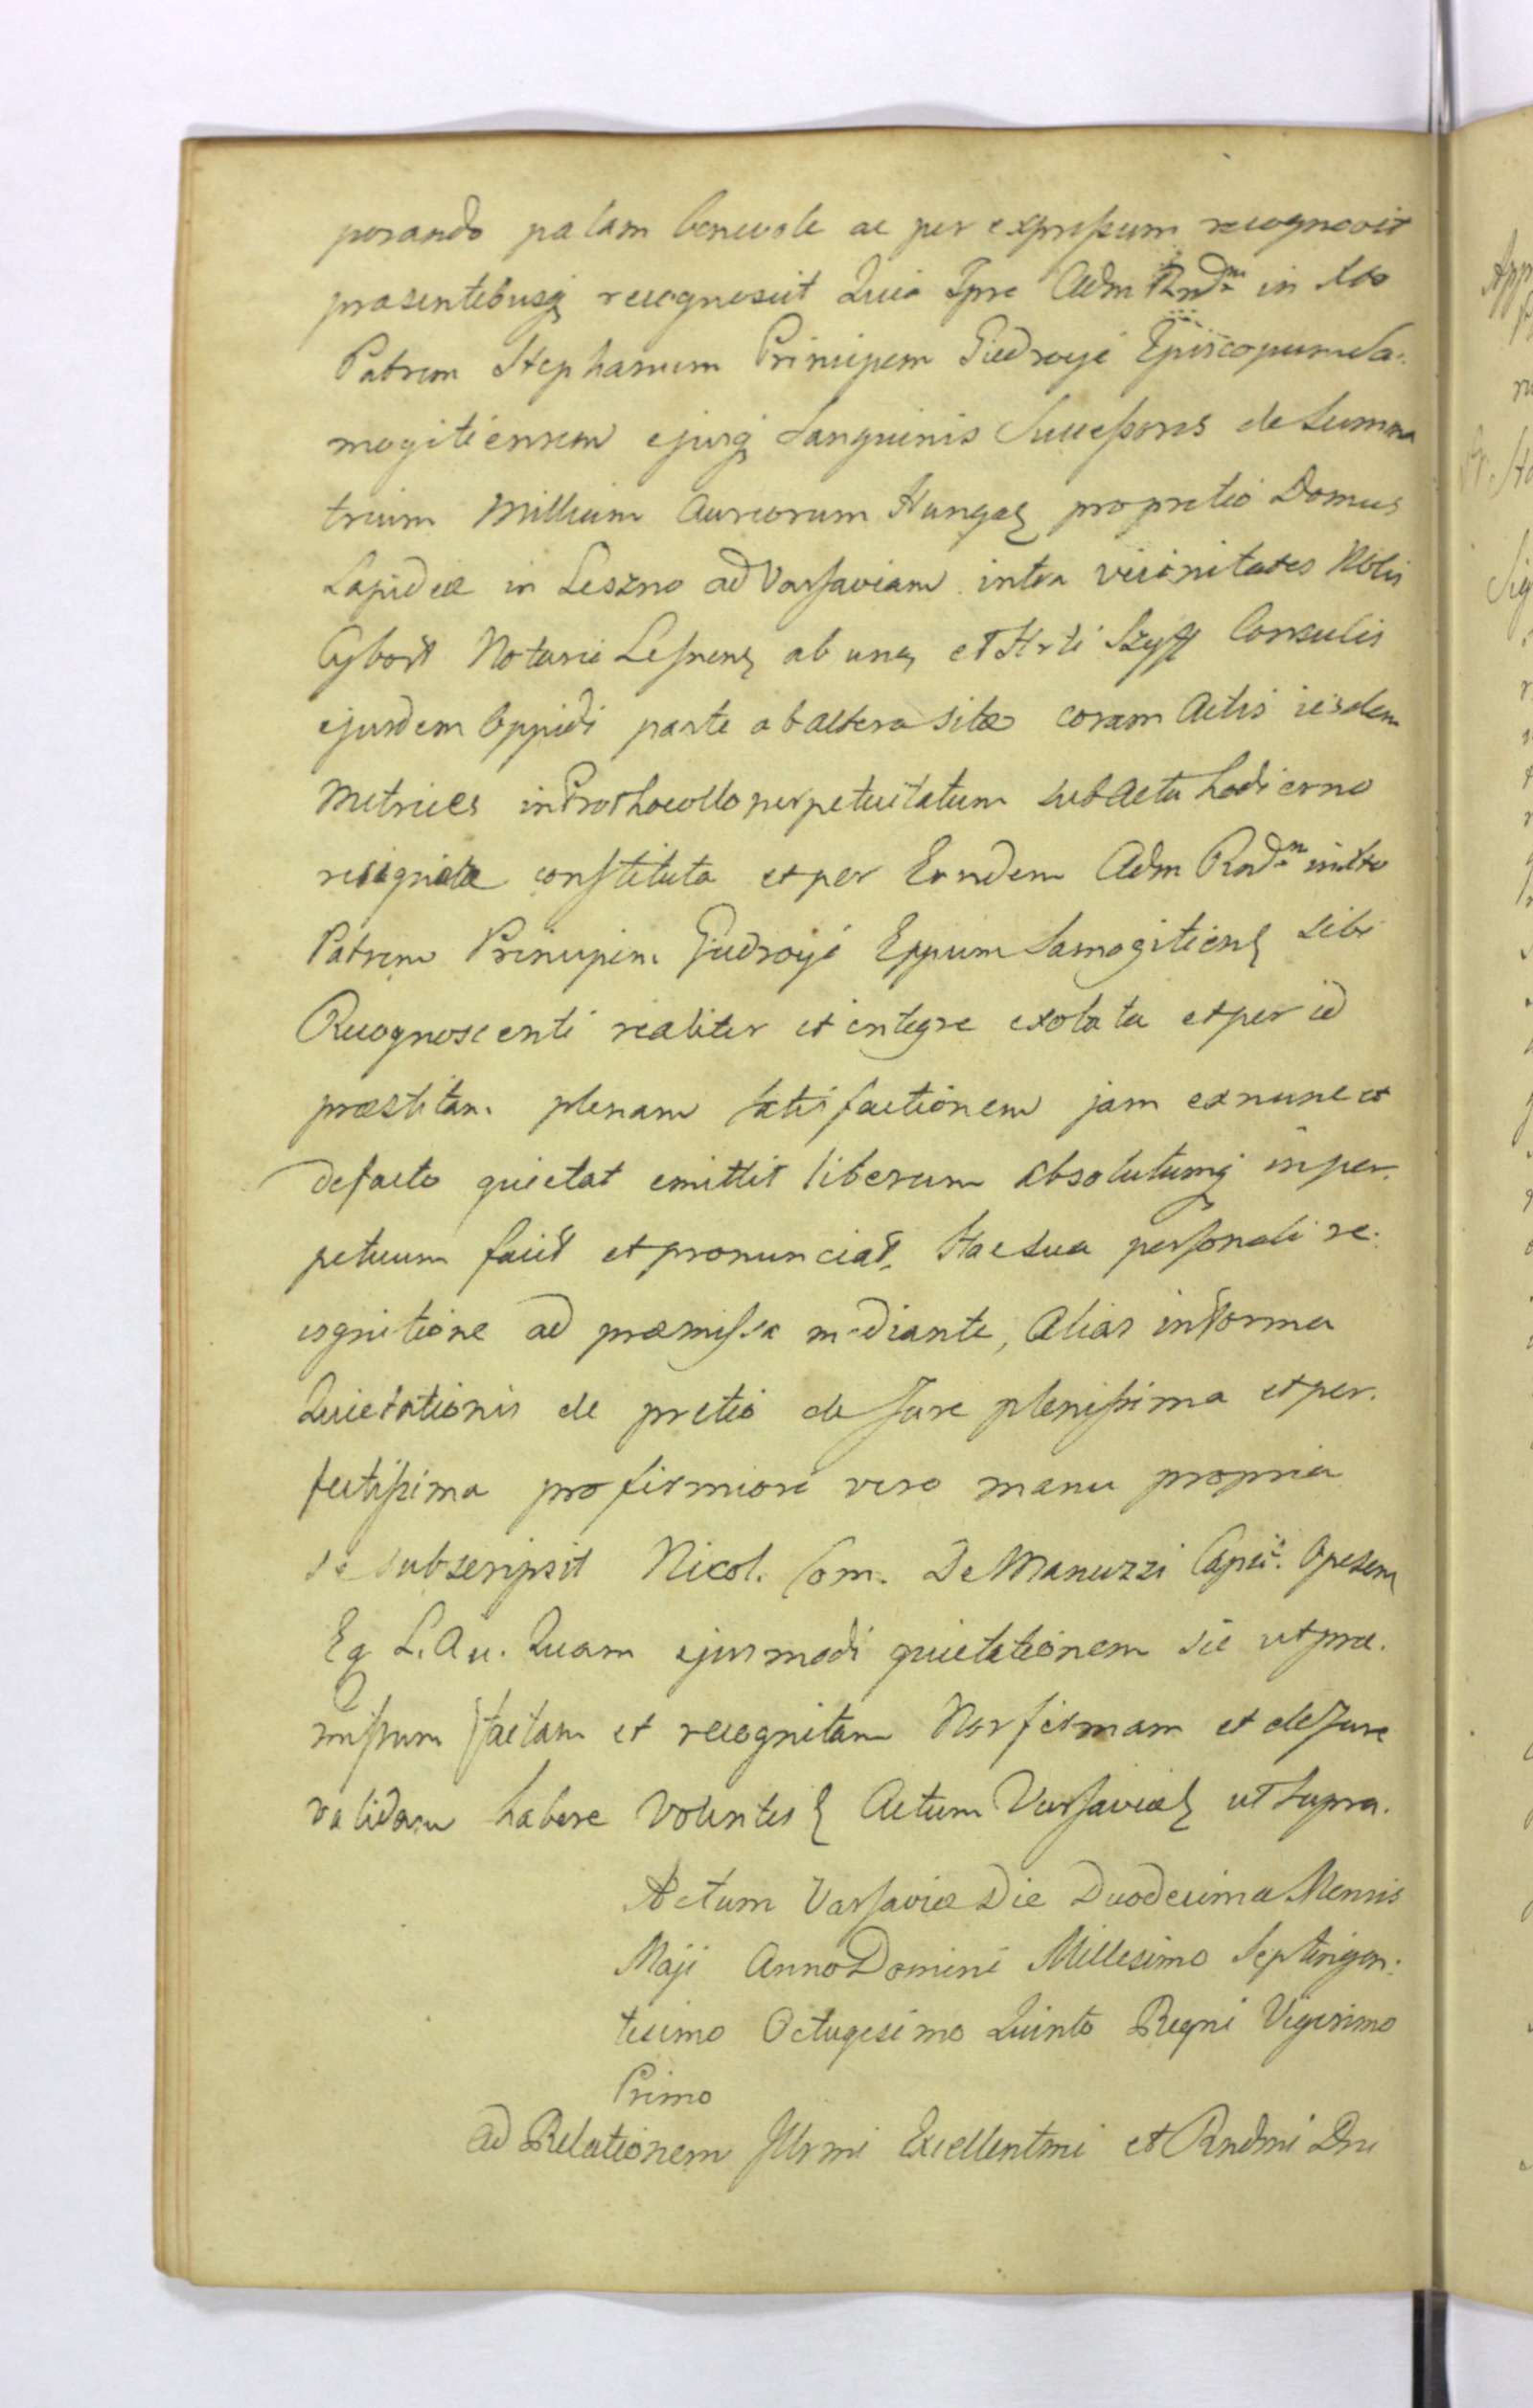 porando palam benevole ac per expressum recognovit
praesentibusq recognoscit Quia Ipse Adm Rndm in Xto
Patrem Stephanum Principem Giedroyć Episcopum Sa-
mogitiensem ejusq Sanguinis Successores de Summa
trium Millium Aureorum Hungar pro pretio Domus
Lapideæ in Leszno ad Varsaviam intra vicinitates Nobis
Cybort Notarii Lesnens ab una et Szyff Consulis
ejusdem Oppidi parte ab altera sitæ coram Actis iisdem
Metrices in Prothocollo perpetuitatum sub Actu hodierno
resignatæ constituta et per Eundem Adm Rndm in Xto
Patrem Principem Giedroyć Eppum Samogitiens Sibi
Recognoscenti realiter et integre exoluta et per id
præstitam plenam satisfactionem jam ex nunc et
de facto quietat emittit liberum absolutumq in per-
petuum facit et pronunciat, Hac sua personali re-
cognitione ad præmissa mediante, Alias in forma
Quietationis de pretio de Jure plenissima et per-
fectissima pro firmiori vero manu propria
se subscripsit Nicol. Com. De Manuzzi Capit. Opesens
Eq L. Au. Quam ejusmodi quietationem sic ut præ-
missum factam et recognitam Nos firmam et de Jure
validam habere Volentes Actum Varsaviæ ut supra.
Actum Varsaviæ Die Duodecima Mensis
Maji Anno Domini Millesimo Septingen-
tesimo Octugesimo Quinto Regni Vigesimo
Primo
ad Relationem Illrmi Excellentmi et Rndmi Dni